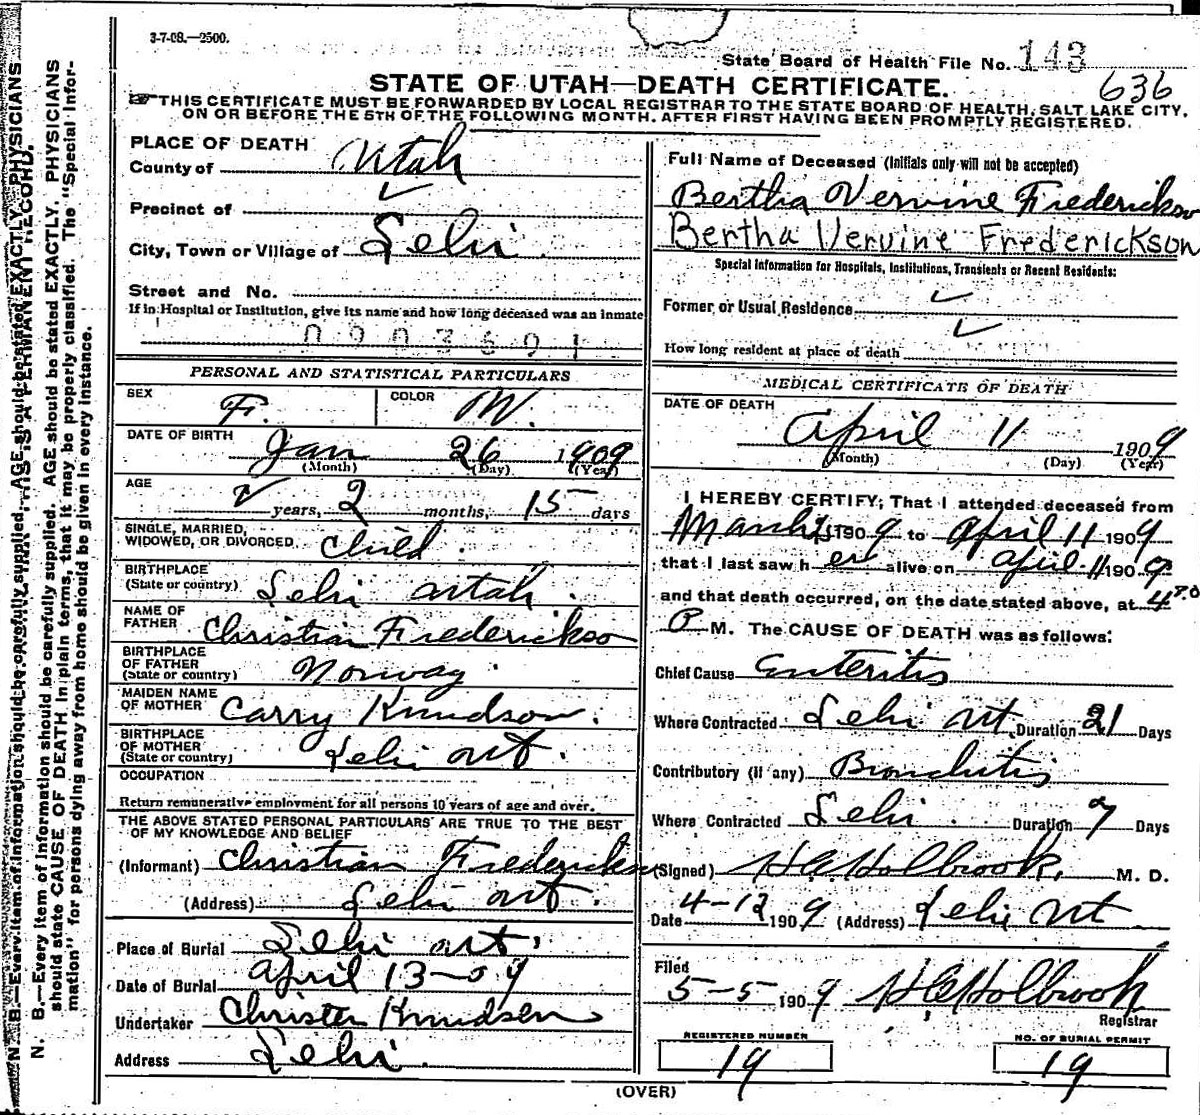 3-7-08.—2500.
State Board of Health File No. 143
636
STATE OF UTAH—DEATH CERTIFICATE.
THIS CERTIFICATE MUST BE FORWARDED BY LOCAL REGISTRAR TO THE STATE BOARD OF HEALTH, SALT LAKE CITY,
ON OR BEFORE THE 5TH OF THE FOLLOWING MONTH, AFTER FIRST HAVING BEEN PROMPTLY REGISTERED.
PLACE OF DEATH
County of Utah
Precinct of
City, Town or Village of Lehi
Street and No.
If in Hospital or Institution, give its name and how long deceased was an inmate
0003691
PERSONAL AND STATISTICAL PARTICULARS
SEX F. COLOR W.
DATE OF BIRTH Jan 26 1909
(Month) (Day) (Year)
AGE years, 2 months, 15 days
SINGLE, MARRIED,
WIDOWED, OR DIVORCED Child.
BIRTHPLACE
(State or country) Lehi Utah.
NAME OF
FATHER Christian Frederickso
BIRTHPLACE
OF FATHER
(State or country) Norway.
MAIDEN NAME
OF MOTHER Carry Knudson.
BIRTHPLACE
OF MOTHER
(State or country) Lehi Ut.
OCCUPATION
Return remunerative employment for all persons 10 years of age and over.
THE ABOVE STATED PERSONAL PARTICULARS ARE TRUE TO THE BEST
OF MY KNOWLEDGE AND BELIEF
(Informant) Christian Frederickson
(Address) Lehi Ut.
Place of Burial Lehi Ut.
Date of Burial April 13-09
Undertaker Christen Knudsen
Address Lehi.
Full Name of Deceased (Initials only will not be accepted)
Bertha Vervine Frederickso
Bertha Vervine Frederickson
Special Information for Hospitals, Institutions, Transients or Recent Residents:
Former or Usual Residence
How long resident at place of death
MEDICAL CERTIFICATE OF DEATH
DATE OF DEATH
April 11 1909
(Month) (Day) (Year)
I HEREBY CERTIFY, That I attended deceased from
March 1909 to April 11 1909
that I last saw her alive on April 11 1909
and that death occurred, on the date stated above, at 4
P M. The CAUSE OF DEATH was as follows:
Chief Cause Enteritis
Where Contracted Lehi Ut. Duration 21 Days
Contributory (if any) Bronchitis
Where Contracted Lehi. Duration 7 Days
(Signed) H.C. Holbrook, M. D.
Date 4-12 1909 (Address) Lehi Ut
Filed
5-5- 1909 H.C. Holbrook
Registrar
REGISTERED NUMBER
19
NO. OF BURIAL PERMIT
19
(OVER)
N. B.—Every item of information should be carefully supplied. AGE should be stated EXACTLY. PHYSICIANS
should state CAUSE OF DEATH in plain terms, that it may be properly classified. The "Special Infor-
mation" for persons dying away from home should be given in every instance.